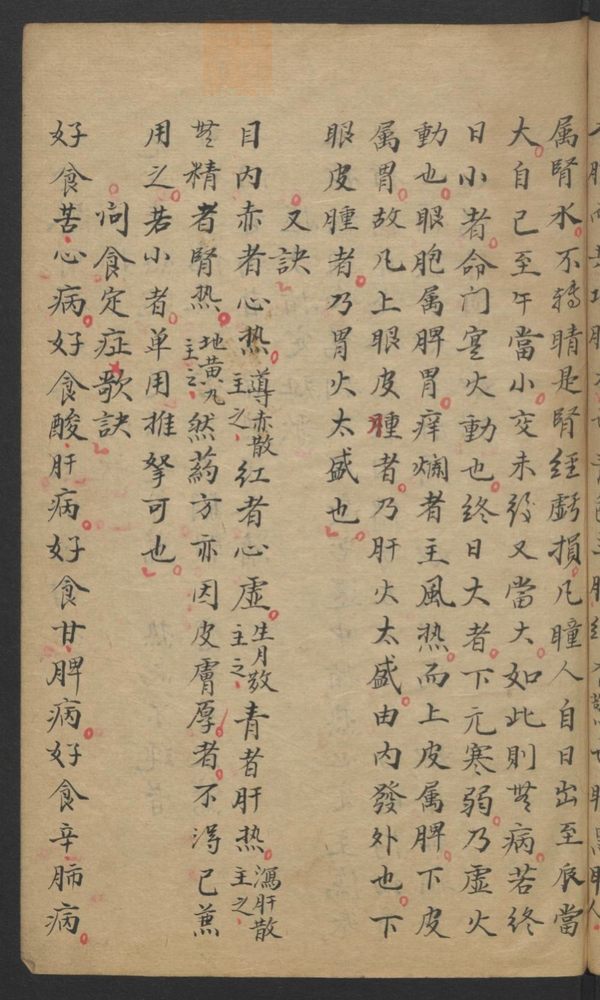 属腎水不轉睛是腎經虧損凡瞳人自日出至辰當
大自己至午當小交未後又當大如此則無病若終
日小者命门寔火動也終日大者下元寒弱乃虛火
動也眼胞属脾胃痒爛者主風热而上皮属脾下皮
属胃故凡上眼皮腫者乃肝火太盛由内發外也下
眼皮腫者乃胃火太盛也
又訣
目内赤者心热導赤散主之紅者心虛生月散主之青者肝热瀉肝散主之
無精者腎热地黄丸主之然葯方亦因皮膚厚者不淂已蒸
用之若小者单用推拏可也
问食定症歌訣
好食苦心病好食酸肝病好食甘脾病好食辛肺病